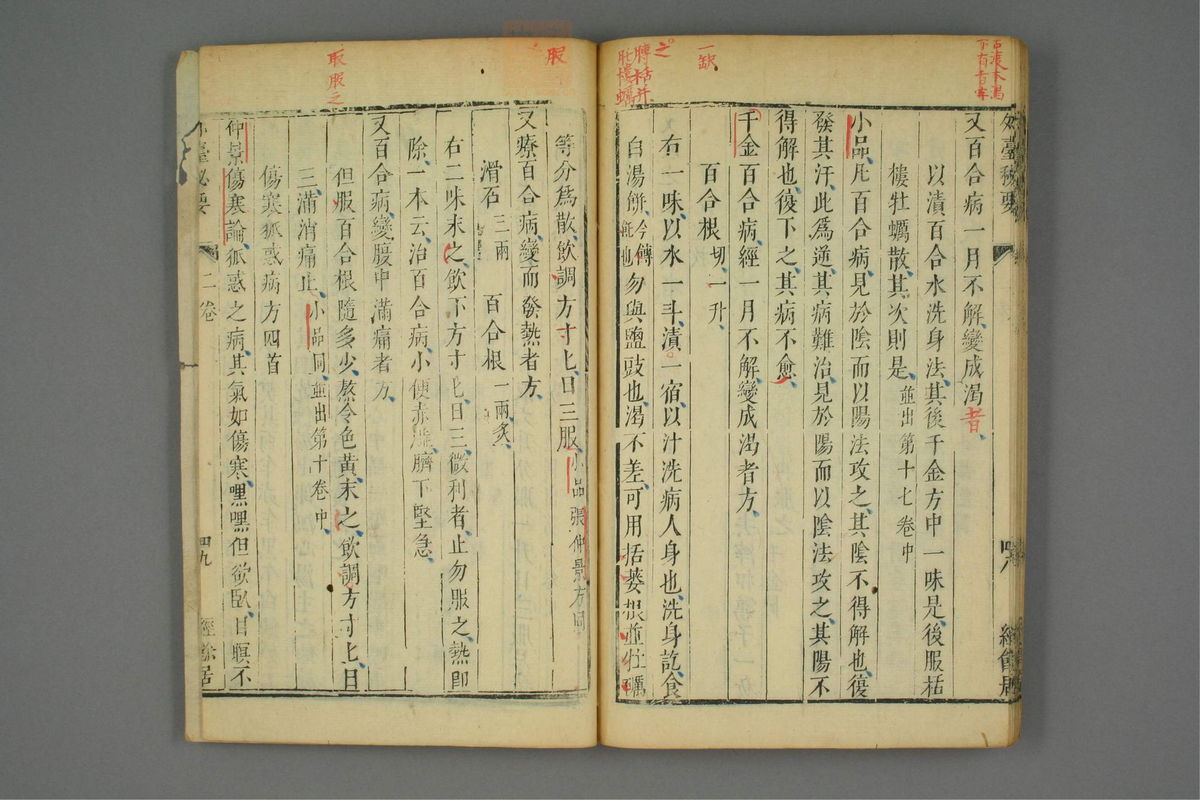 古凌本渇
下有者字
一缺
之
膊栝并
牡樓蠣
外臺秘要
四八
經餘居
又百合病一月不解變成渴者
以漬百合水洗身法其後千金方中一味是後服栝
樓牡蠣散其次則是並出第十七卷中
小品凡百合病見於陰而以陽法攻之其陰不得解也復
發其汗此爲逆其病難治見於陽而以陰法攻之其陽不
得解也復下之其病不愈
千金百合病經一月不解變成渴者方
百合根切一升
右一味以水一斗漬一宿以汁洗病人身也洗身訖食
白湯餅今傅
飥也勿與鹽豉也渴不差可用括蔞根並牡礪
服
服服之
等分爲散飲調方寸匕日三服小品張仲景方同
又療百合病變而發熱者方
滑石三兩 百合根一兩炙
右二味末之飲下方寸匕日三微利者止勿服之熱即
除一本云治百合病小便赤澁臍下堅急
又百合病變腹中滿痛者方
但服百合根隨多少熬令色黃末之飲調方寸匕日
三滿消痛止小品同並出第十卷中
傷寒狐惑病方四首
仲景傷寒論狐惑之病其氣如傷寒嘿嘿但欲臥目瞑不
外臺秘要
二卷
四九
經餘居